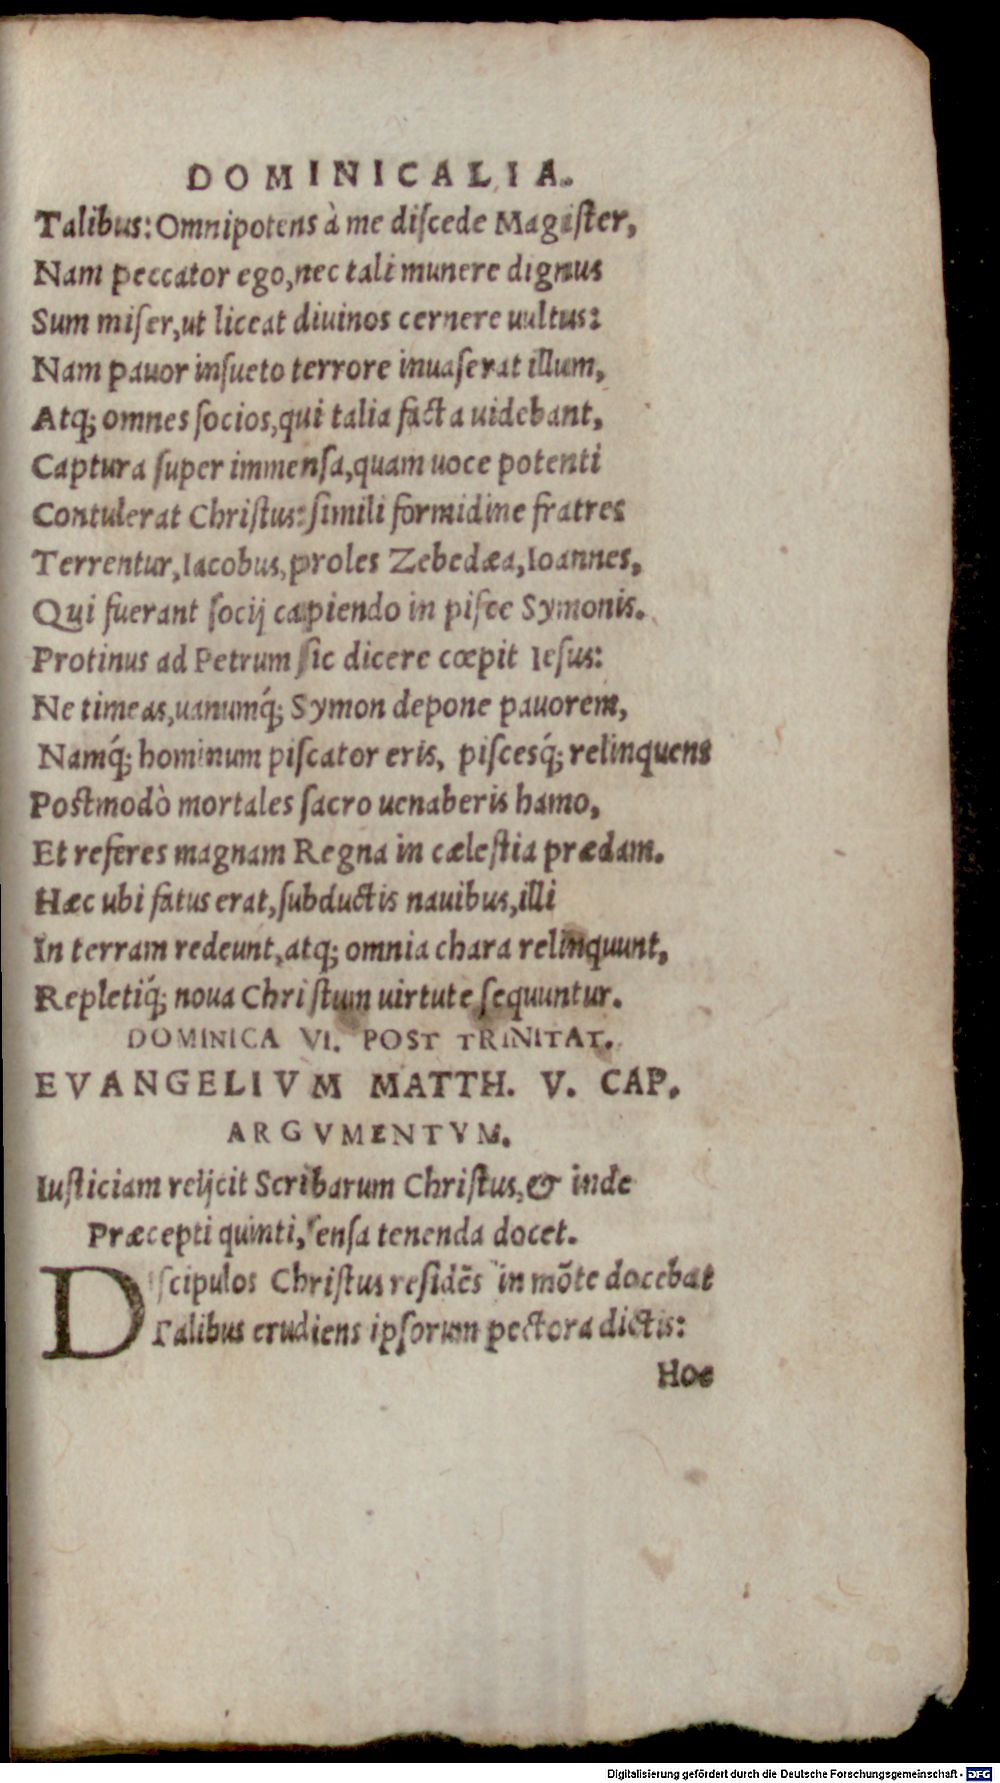 DOMINICALIA.
Talibus: Omnipotens à me diſcede Magiſter,
Nam peccator ego, nec tali munere dignus
Sum miſer, ut liceat diuinos cernere uultus:
Nam pauor inſueto terrore inuaſerat illum,
Atq; omnes ſocios, qui talia facta uidebant,
Captura ſuper immenſa, quam uoce potenti
Contulerat Chriſtus: ſimili formidine fratres
Terrentur, Iacobus, proles Zebedæa, Ioannes,
Qui fuerant ſocij capiendo in piſce Symonis.
Protinus ad Petrum ſic dicere cœpit Ieſus:
Ne timeas, uanumq́; Symon depone pauorem,
Namq́; hominum piſcator eris, piſcesq́; relinquens
Poſtmodò mortales ſacro uenaberis hamo,
Et referes magnam Regna in cæleſtia prædam.
Hæc ubi fatus erat, ſubductis nauibus, illi
In terram redeunt, atq; omnia chara relinquunt,
Repletiq́; noua Chriſtum uirtute ſequuntur.
DOMINICA VI. POST TRINITAT.
EVANGELIVM MATTH. V. CAP.
ARGVMENTVM.
Iuſticiam reijcit Scribarum Chriſtus, & inde
Præcepti quinti, ſenſa tenenda docet.
Diſcipulos Chriſtus reſidẽs in mõte docebat
Talibus erudiens ipſorum pectora dictis:
Hoc
Digitalisierung gefördert durch die Deutsche Forschungsgemeinschaft - DFG